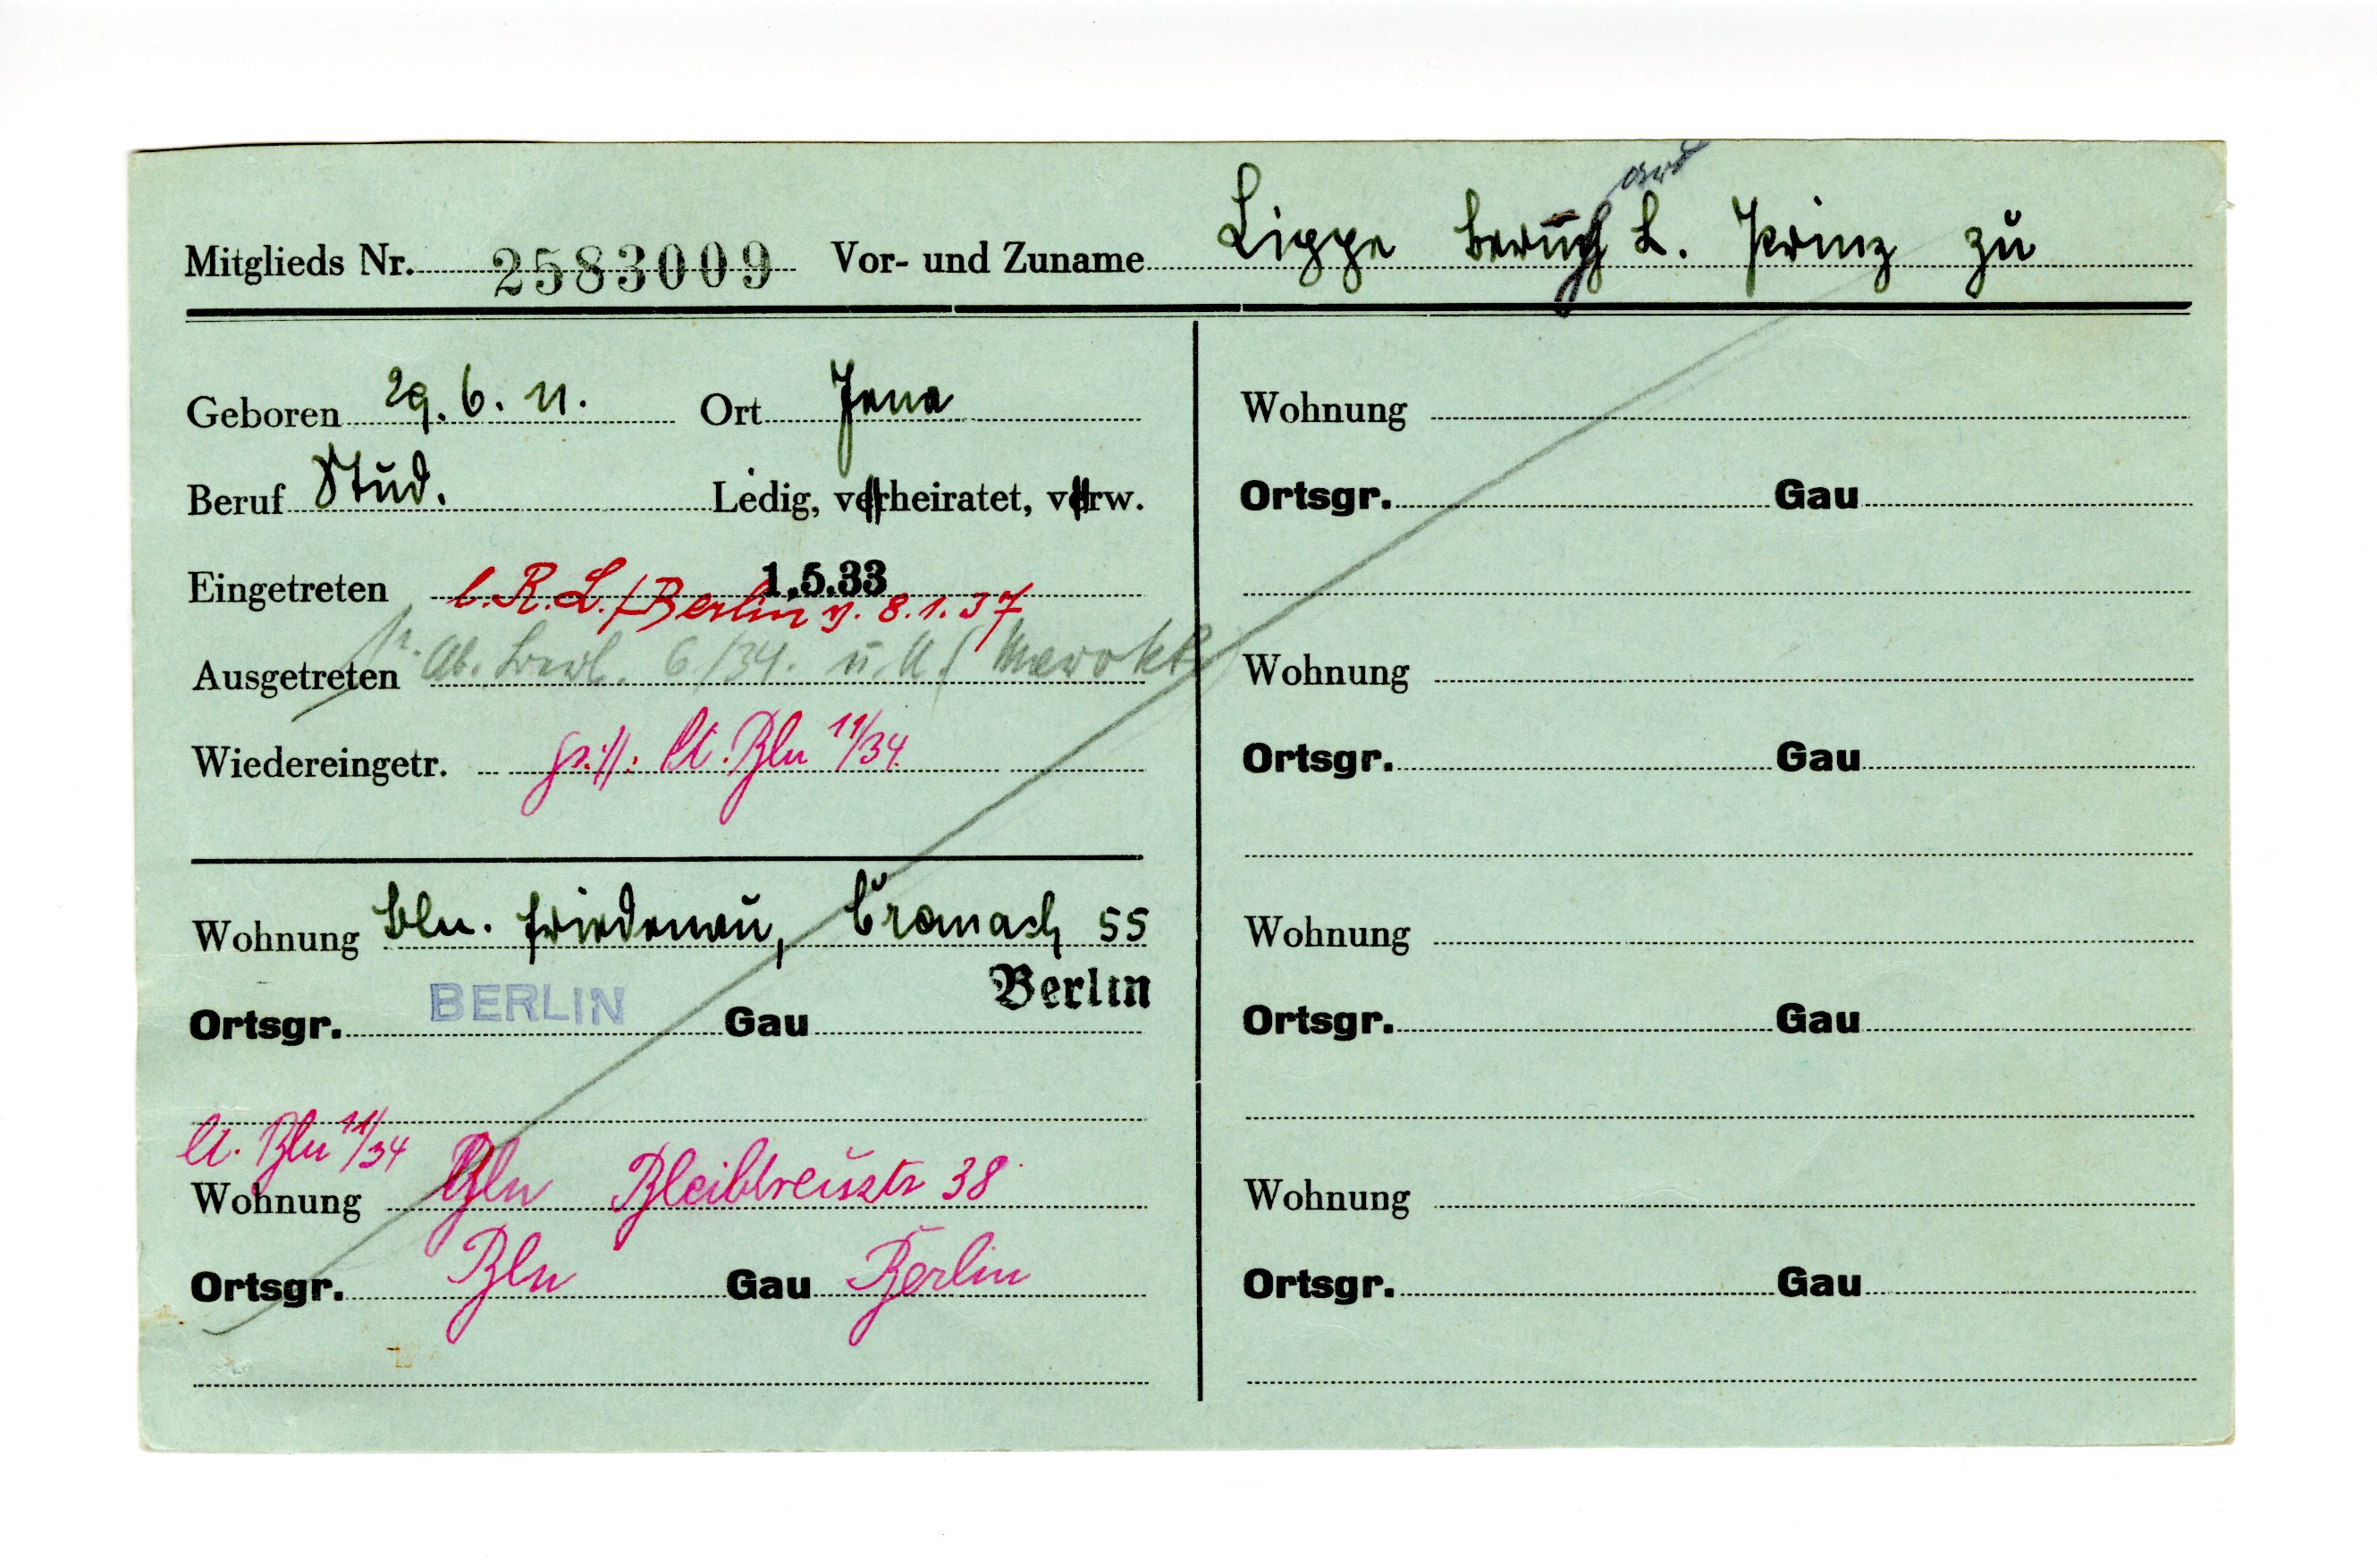 Mitglieds Nr. 2583009 Vor- und Zuname Lippe Bernh L. Prinz zu
Geboren 29. 6. 11. Ort Jena
Beruf Stud. Ledig, verheiratet, verw.
Eingetreten 1.5.33
b. R.L./Berlin v. 8.1.37
Ausgetreten 6/34.
Wiedereingetr. lt. Bln 11/34
Wohnung Bln. Friedenau, Cranach 55
Ortsgr. BERLIN Gau Berlin
lt. Bln 11/34
Wohnung Bln Bleibtreustr 38
Ortsgr. Bln Gau Berlin
Wohnung
Ortsgr. Gau
Wohnung
Ortsgr. Gau
Wohnung
Ortsgr. Gau
Wohnung
Ortsgr. Gau